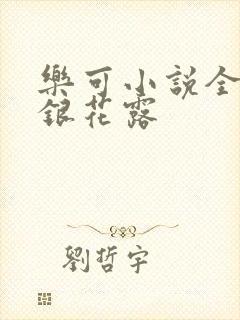 樂可小說全
銀花露
劉哲宇